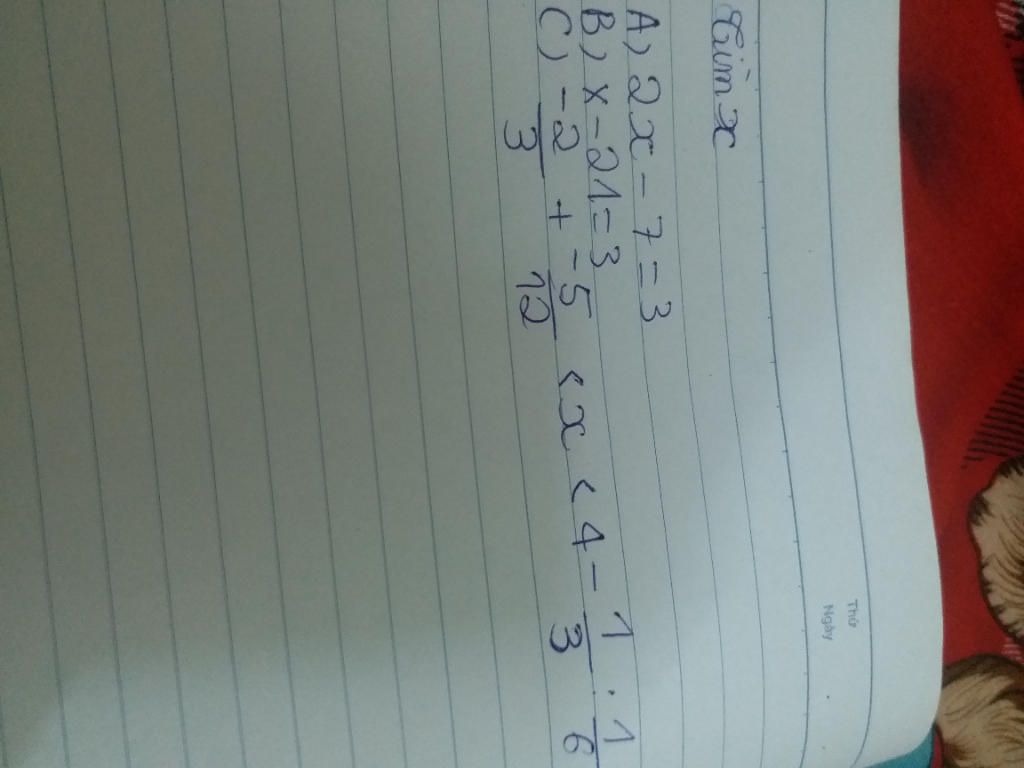 Thứ
Ngày
Tìm x
A) 2x - 7 = 3
B) x - 21 = 3
C) -2/3 + -5/12 < x < 4 - 1/3 . 1/6